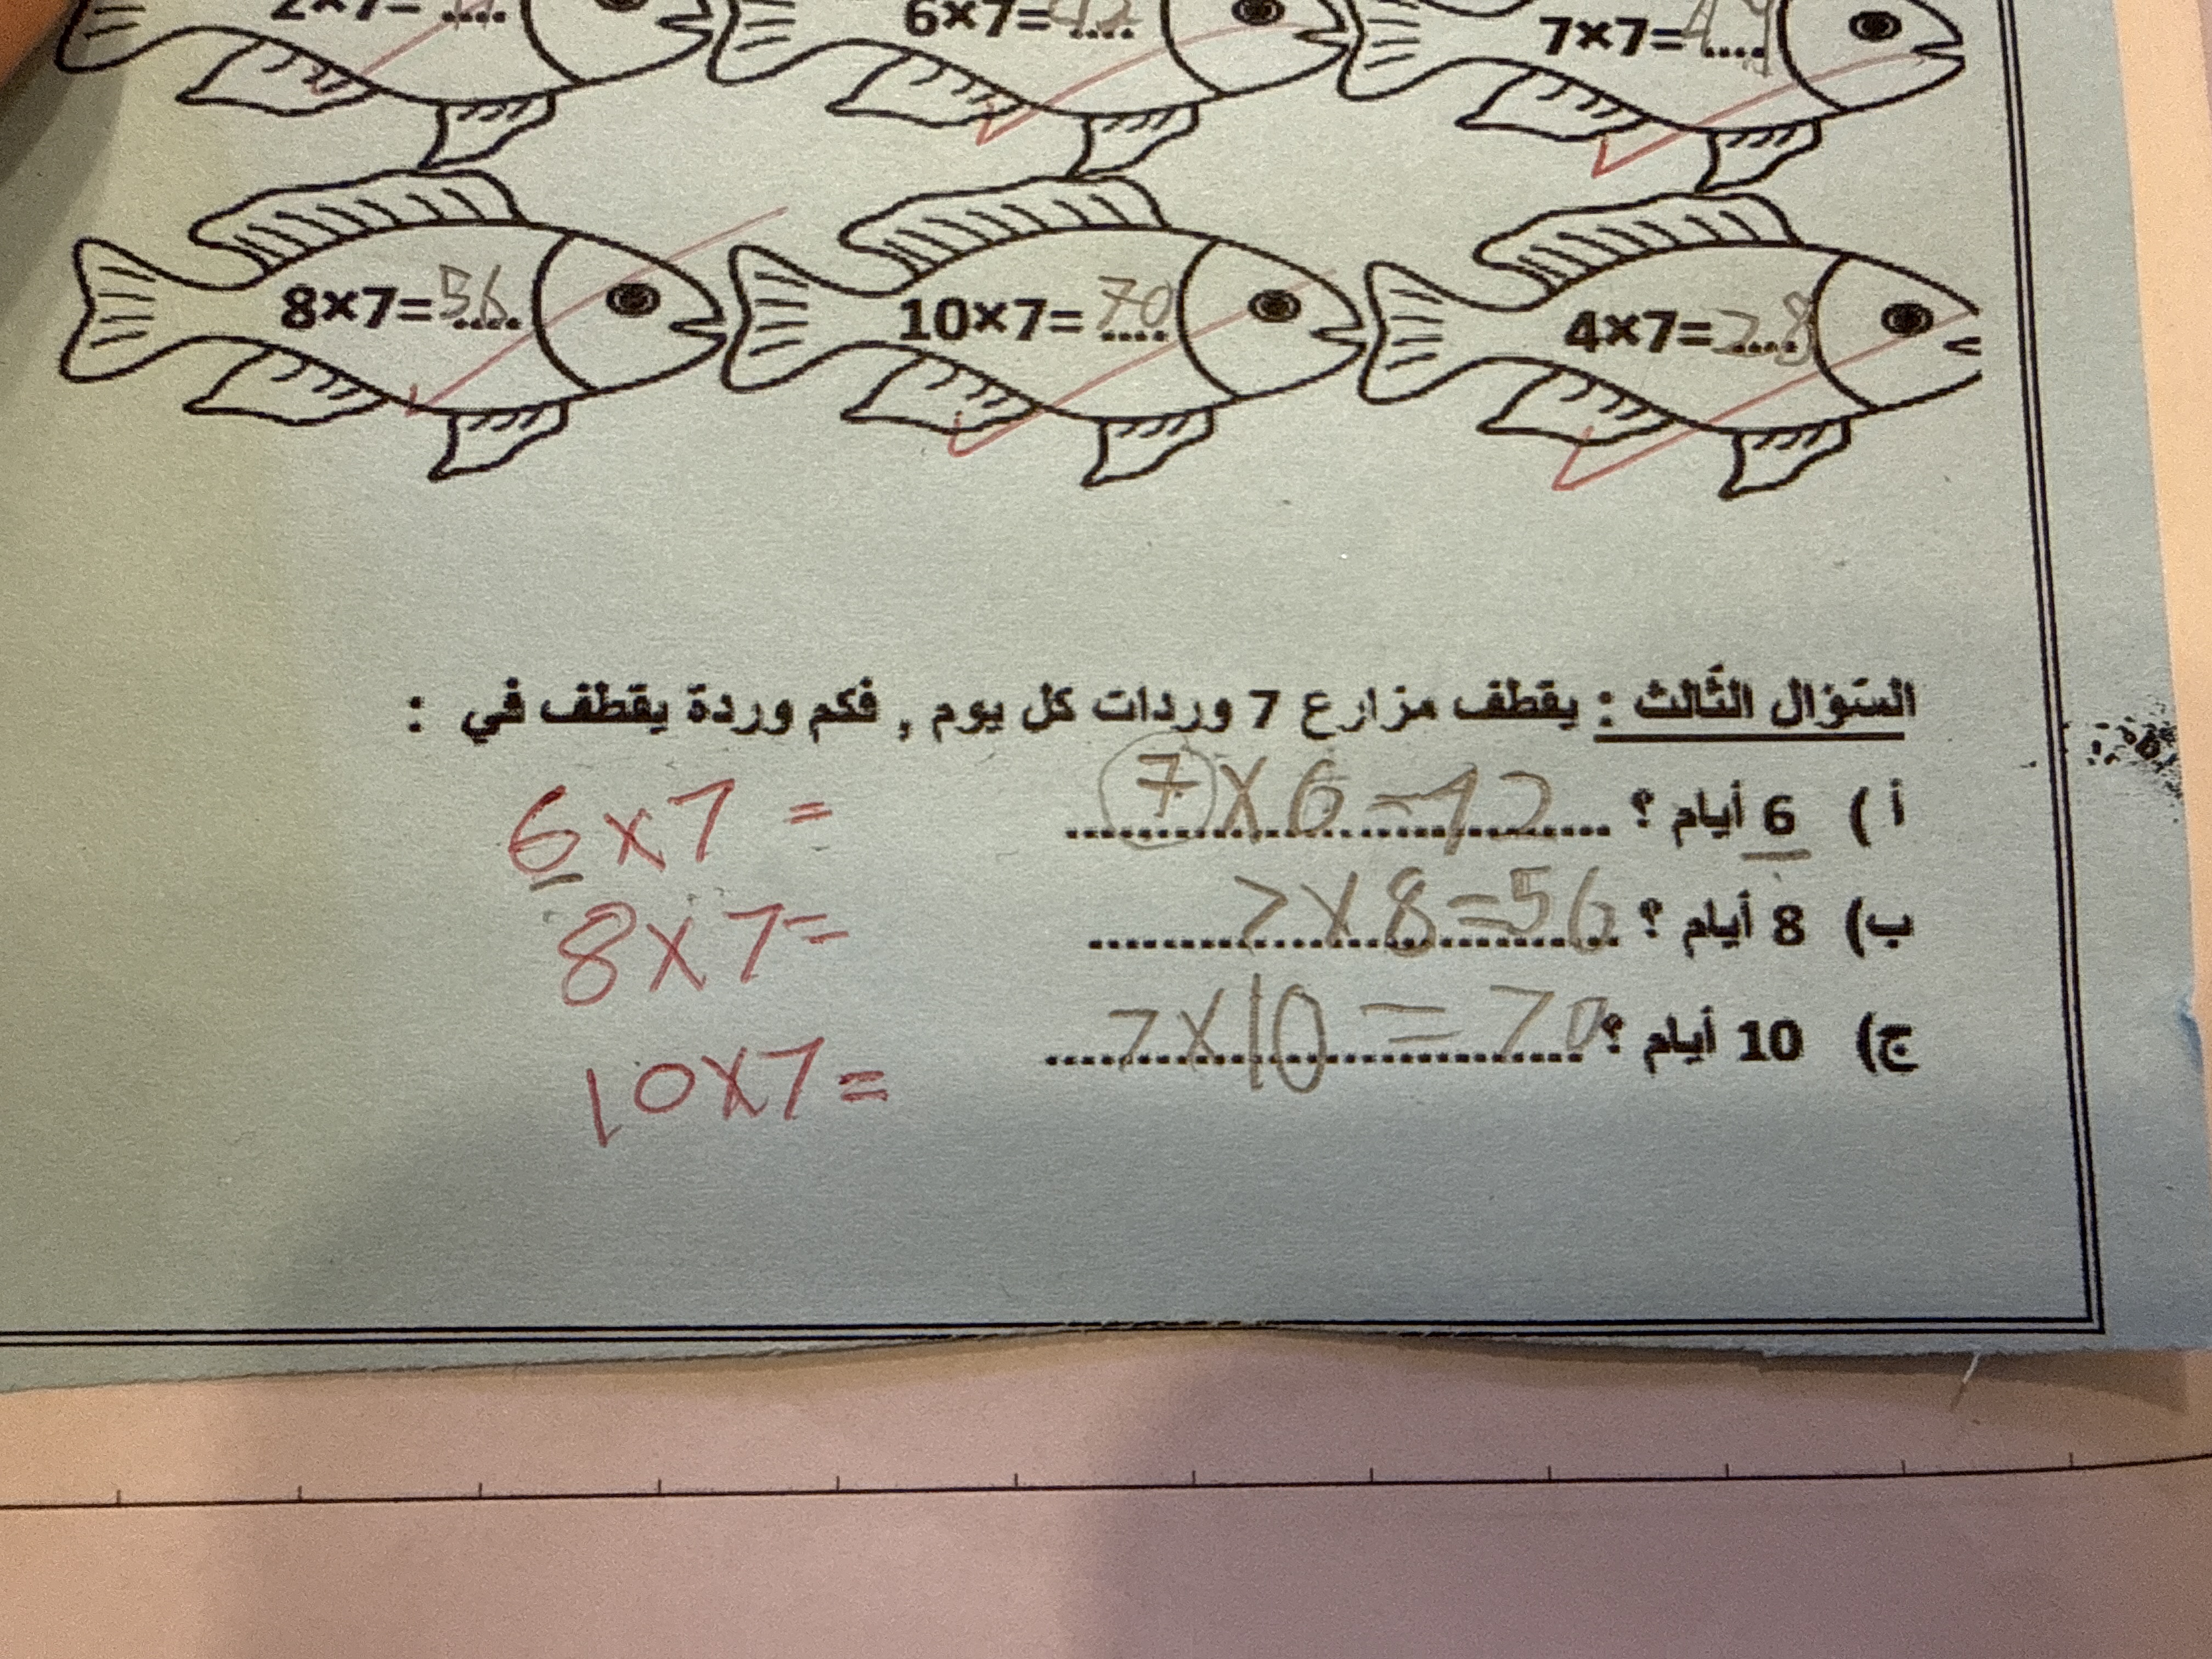 2×7=
6×7= 42
7×7= 49
8×7= 56
10×7= 70
4×7= 28
السّؤال الثّالث : يقطف مزارع 7 وردات كل يوم , فكم وردة يقطف في :
أ ) 6 أيام ؟ 7×6=42
6×7=
ب) 8 أيام ؟ 7×8=56
8×7=
ج) 10 أيام ؟ 7×10=70
10×7=